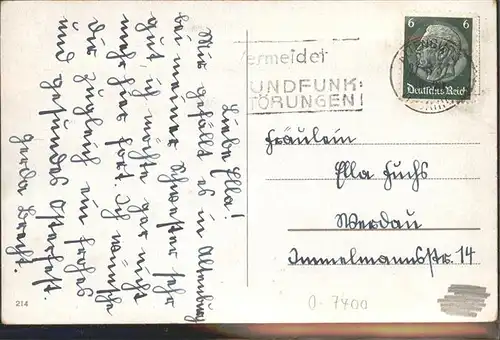 Liebe Ella!
Mir gefällt es in Altenburg
bei meiner Schwester sehr
gut ich möchte gar nicht
mehr hier fort. Ich wünsche
dir zugleich ein frohes
und gesundes Osterfest.
Gerda
Vermeidet
RUNDFUNK-
STÖRUNGEN!
6 6
Deutsches Reich
Fräulein
Ella Fuchs
Werdau
Immelmannstr. 14
0-7400
214